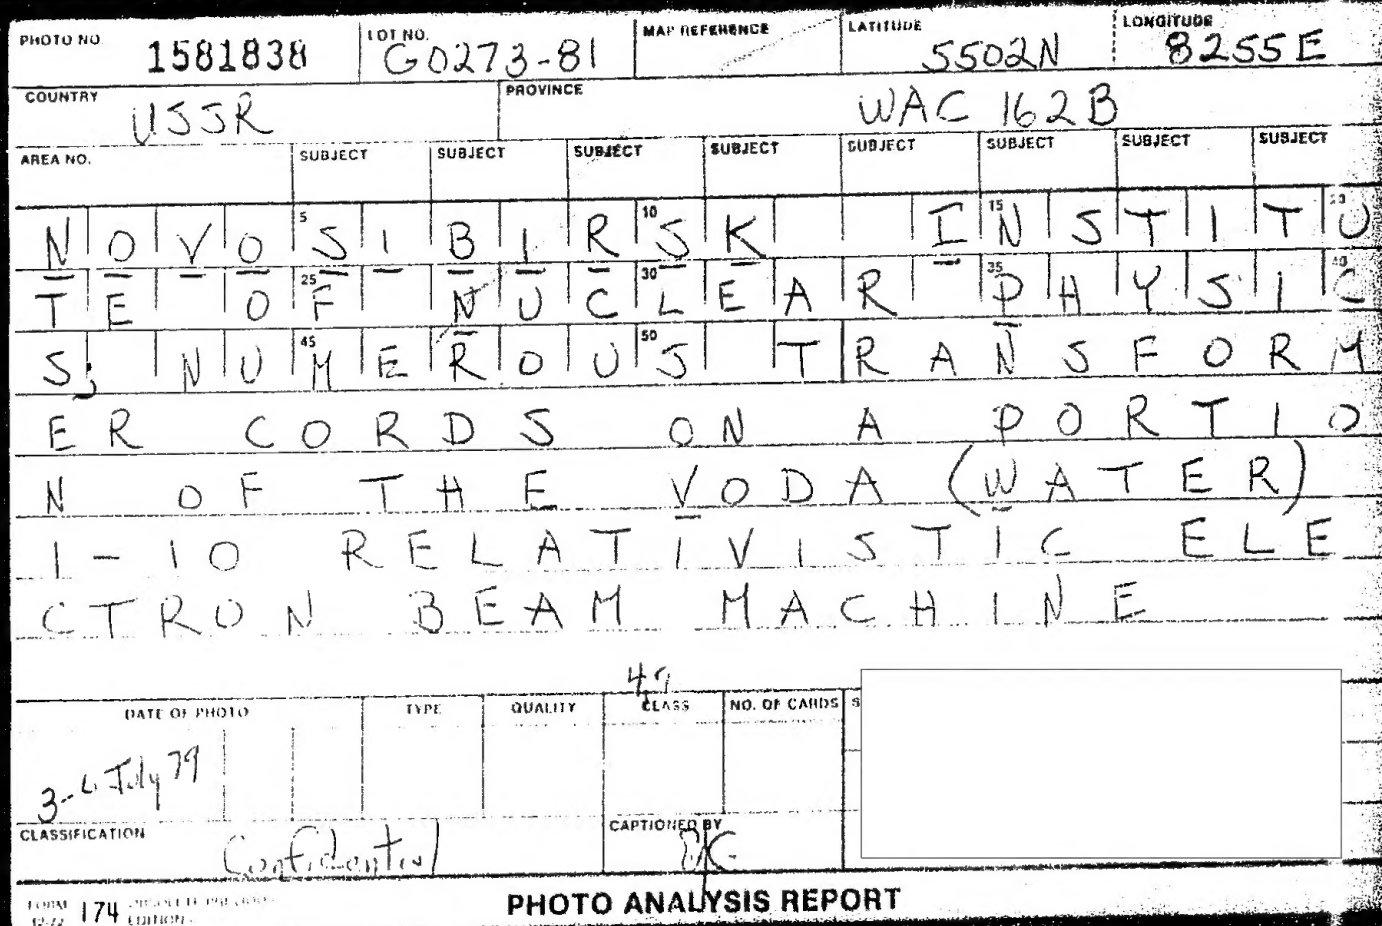 PHOTO NO. 1581838 LOT NO. G0273-81 MAP REFERENCE LATITUDE 5502N LONGITUDE 8255E
COUNTRY USSR PROVINCE WAC 162B
AREA NO. SUBJECT SUBJECT SUBJECT SUBJECT SUBJECT SUBJECT SUBJECT SUBJECT
5 10 15 20
NOVOSIBIRSK INSTITU
25 30 35 40
TE OF NUCLEAR PHYSIC
45 50
S; NUMEROUS TRANSFORM
ER CORDS ON A PORTIO
N OF THE VODA (WATER)
1-10 RELATIVISTIC ELE
CTRON BEAM MACHINE
47
DATE OF PHOTO TYPE QUALITY CLASS NO. OF CARDS S
July 79
CLASSIFICATION Confidential CAPTIONED BY
FORM 174 OBSOLETE PREVIOUS
12-72 EDITIONS
PHOTO ANALYSIS REPORT